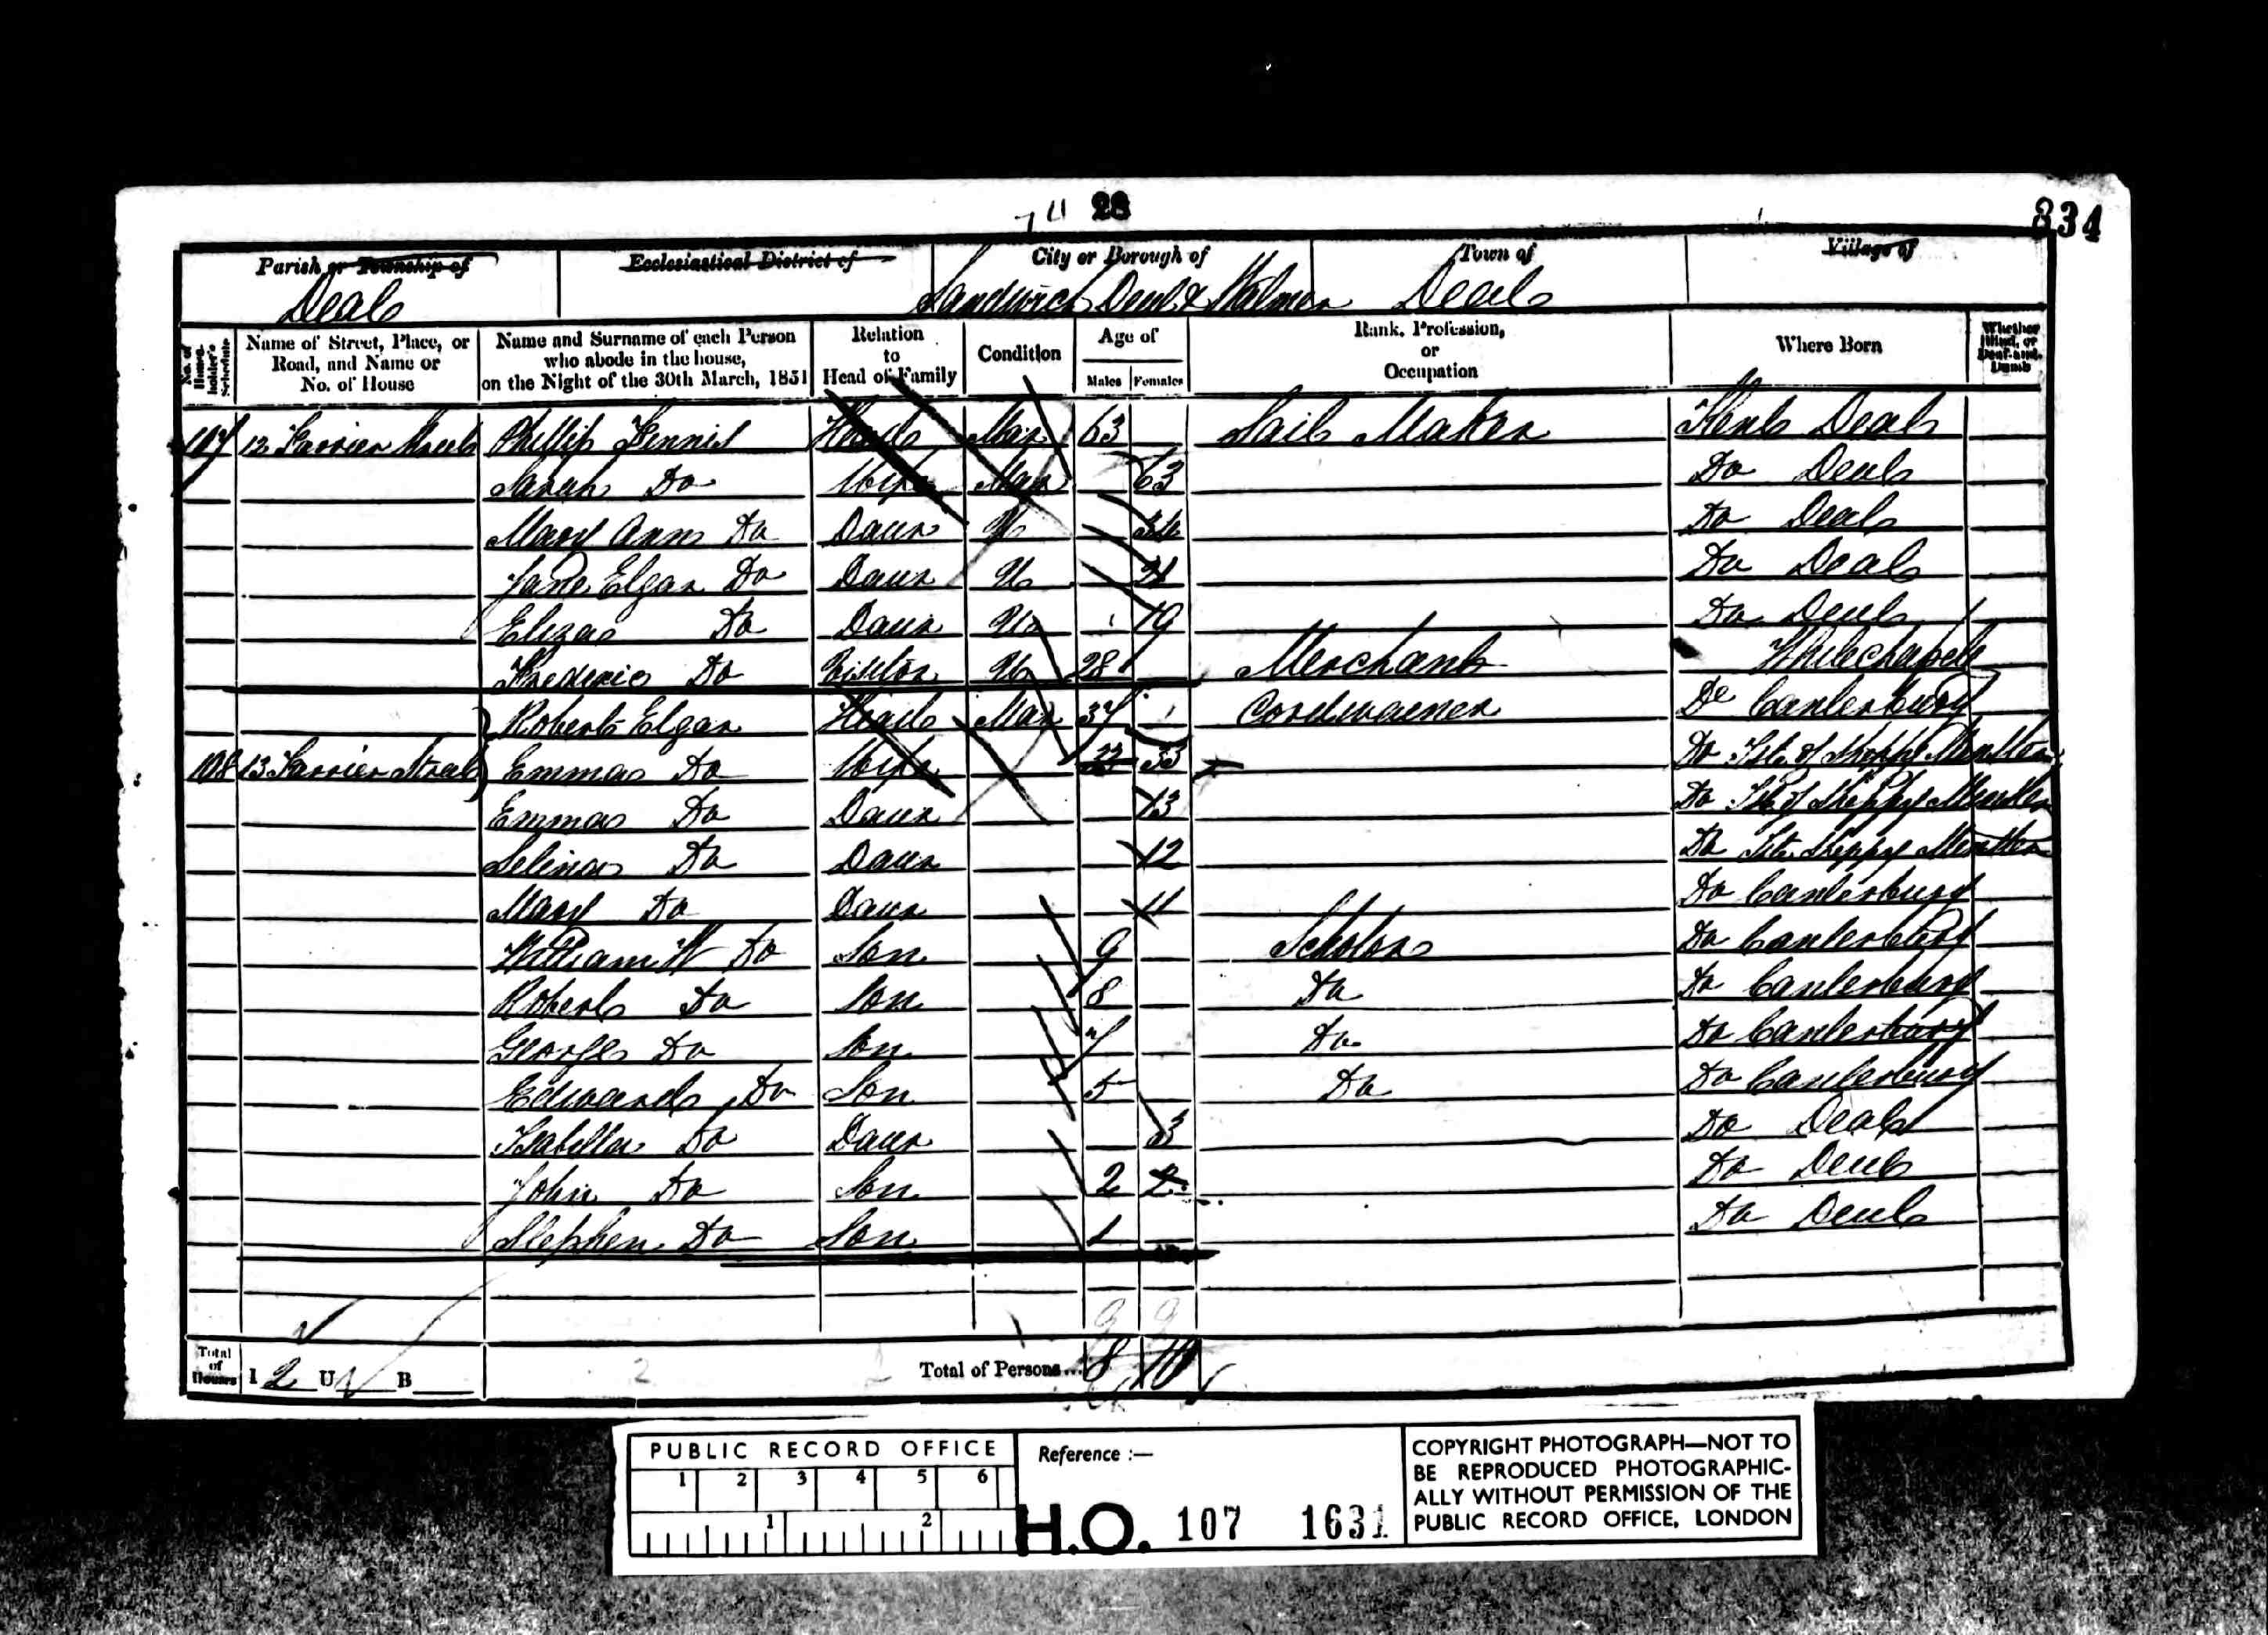 28
834
Parish or Township of
Ecclesiastical District of
City or Borough of
Town of
Village of
Deal
Sandwich Deal & Walmer
Deal
No. of House-holder's Schedule
Name of Street, Place, or Road, and Name or No. of House
Name and Surname of each Person who abode in the house, on the Night of the 30th March, 1851
Relation to Head of Family
Condition
Age of
Males Females
Rank, Profession, or Occupation
Where Born
Whether Blind, or Deaf-and-Dumb
107 12 Farrier Street Phillip Fennis Head Mar 63 Sail Maker Kent Deal
Sarah Do Wife Mar 63 Do Deal
Mary Ann Do Daur U Do Deal
Jane Elgar Do Daur U 21 Do Deal
Eliza Do Daur U 19 Do Deal
Frederic Do Visitor U 28 Merchant Whitechapel
Robert Elgar Head Mar 37 Cordwainer Do Canterbury
108 13 Farrier Street Emma Do Wife 33 Do Isle of Sheppy
Emma Do Daur 13 Do Isle of Sheppy
Selina Do Daur 12 Do Isle Sheppy
Mary Do Daur 11 Do Canterbury
William W Do Son 9 Scholar Do Canterbury
Robert Do Son 8 Do Do Canterbury
George Do Son 7 Do Do Canterbury
Edward Do Son 5 Do Do Canterbury
Isabella Do Daur 3 Do Deal
John Do Son 2 Do Deal
Stephen Do Son 1 Do Deal
Total of Houses I 2 U B
Total of Persons... 8 10
PUBLIC RECORD OFFICE
1 2 3 4 5 6
1 2
Reference :—
H.O. 107 1631
COPYRIGHT PHOTOGRAPH—NOT TO
BE REPRODUCED PHOTOGRAPHIC-
ALLY WITHOUT PERMISSION OF THE
PUBLIC RECORD OFFICE, LONDON